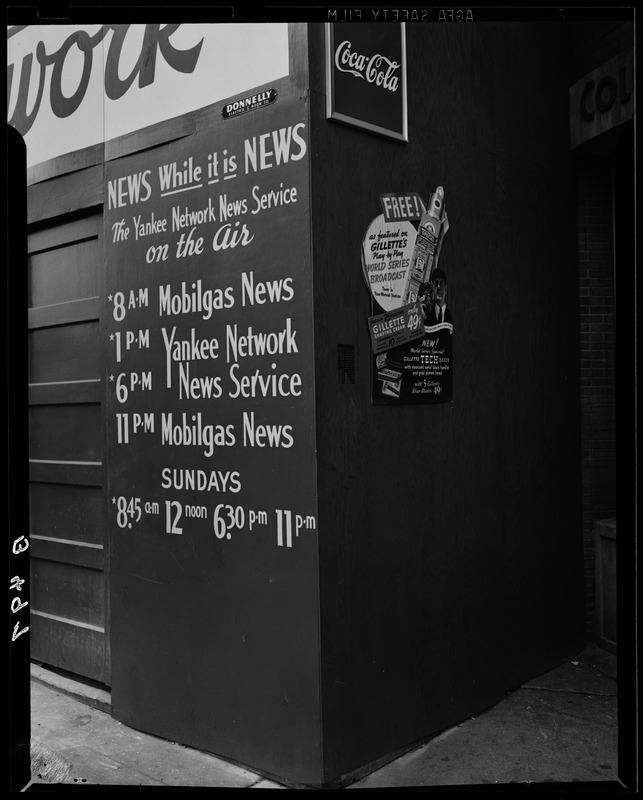 AGFA SAFETY FILM
work
DONNELLY
Coca-Cola
COL
NEWS While it is NEWS
The Yankee Network News Service
on the Air
*8 A.M Mobilgas News
*1 P.M Yankee Network
*6 P.M News Service
11 P.M Mobilgas News
SUNDAYS
*8.45 a.m 12 noon 6.30 p.m 11 p.m
FREE!
as featured on
GILLETTE'S
Play-by-Play
WORLD SERIES
BROADCAST
GILLETTE
SHAVING CREAM
only
49¢
NEW!
World Series Special
GILLETTE TECH RAZOR
with 5 Gillette
Blue Blades 49¢